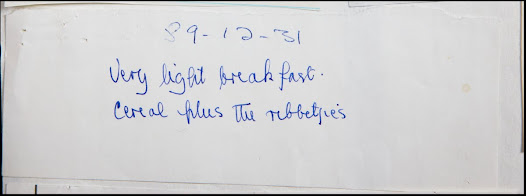 89-12-31
Very light breakfast.
Cereal plus the ribbetjes